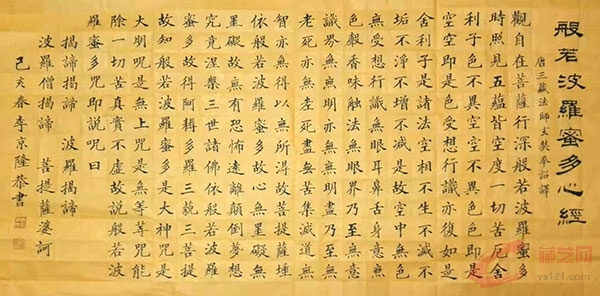 般若波羅蜜多心經
唐三藏法師玄奘奉詔譯
觀自在菩薩行深般若波羅蜜多
時照見五蘊皆空度一切苦厄舍
利子色不異空空不異色色即是
空空即是色受想行識亦復如是
舍利子是諸法空相不生不滅不
垢不淨不增不減是故空中無色
無受想行識無眼耳鼻舌身意無
色聲香味觸法無眼界乃至無意
識界無無明亦無無明盡乃至無
老死亦無老死盡無苦集滅道無
智亦無得以無所得故菩提薩埵
依般若波羅蜜多故心無罣礙無
罣礙故無有恐怖遠離顛倒夢想
究竟涅槃三世諸佛依般若波羅
蜜多故得阿耨多羅三藐三菩提
故知般若波羅蜜多是大神咒是
大明咒是無上咒是無等等咒能
除一切苦真實不虛故說般若波
羅蜜多咒即說咒曰
揭諦揭諦 波羅揭諦
波羅僧揭諦 菩提薩婆訶
己亥春李京隆恭書
ya121.com